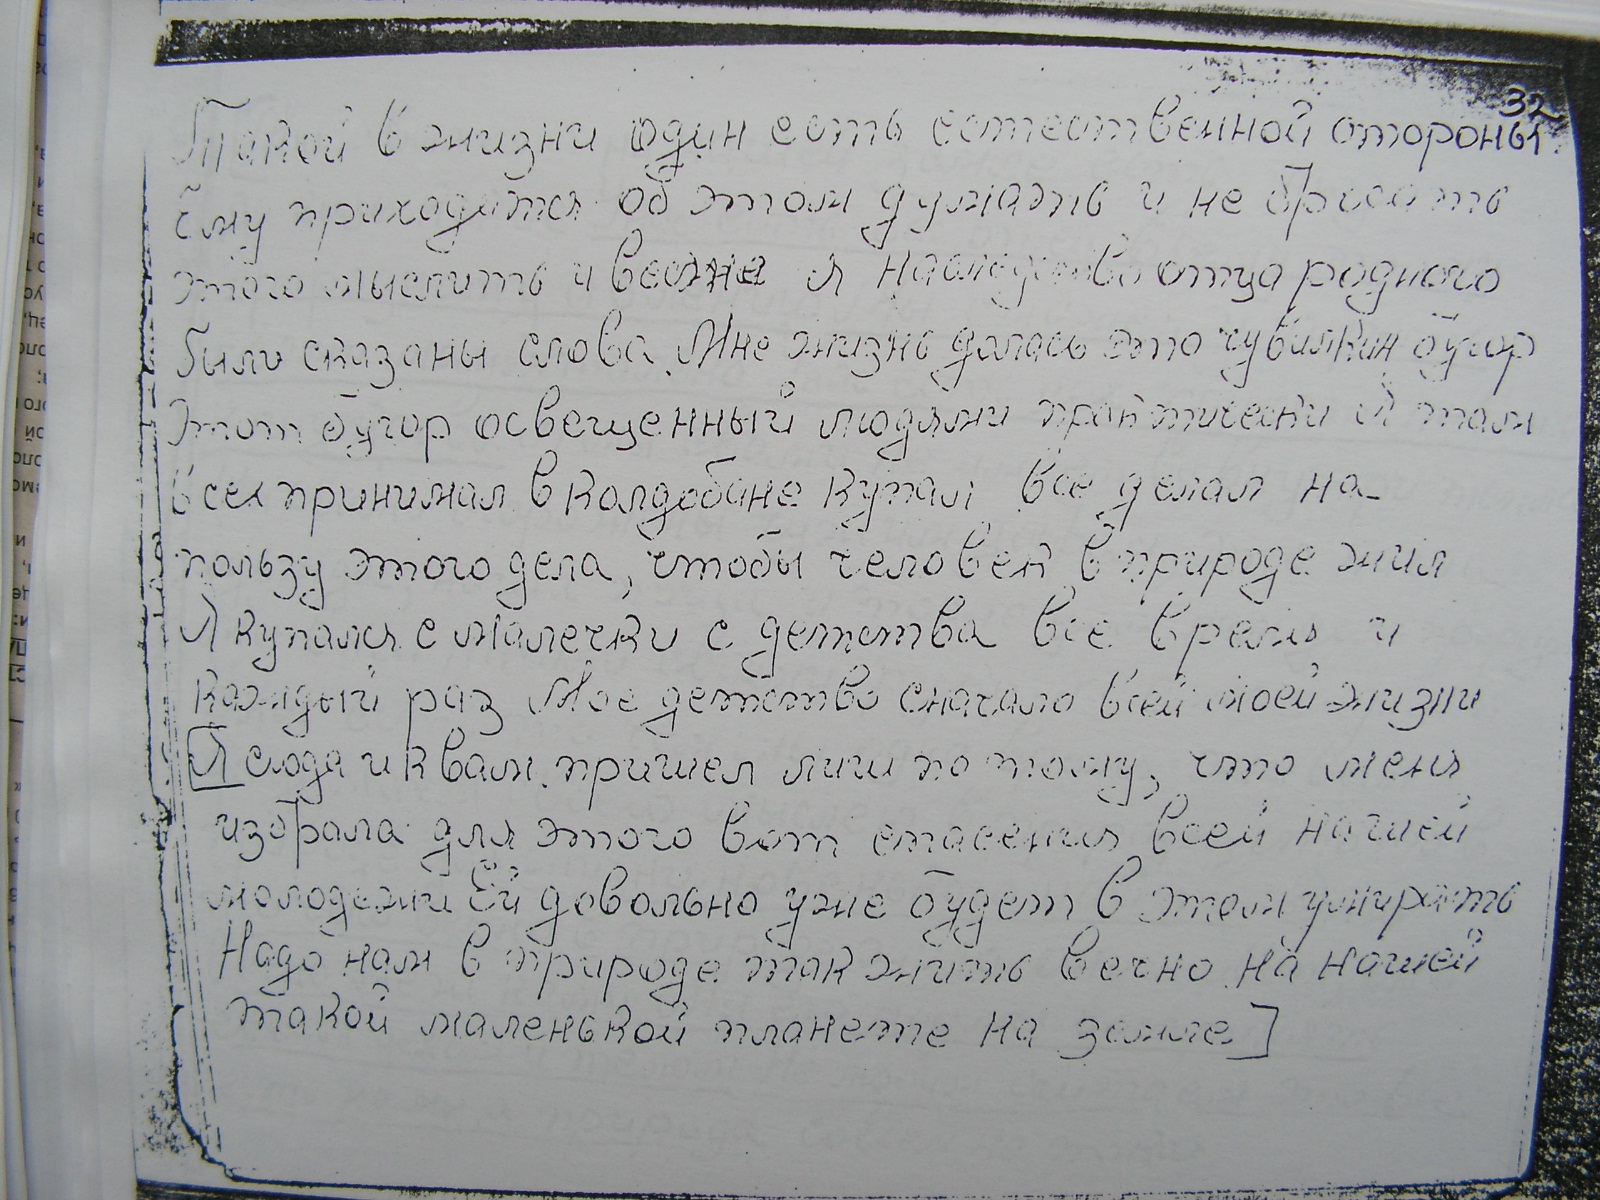 32
Такой в жизни один есть естественной стороны
Ему приходится об этом думать и не бросать
этого мыслить и весне Я наследство отца родного
были сказаны слова. Мне жизнь далась это чувилкин бугор
Этот бугор освещенный людями практически Я там
всех принимал в Колдобане купал все делал на-
пользу этого дела, чтобы человек в природе жил
Я купался с малечки с детства все время и
каждый раз Мое детство сначало всей моей жизни
[Я сюда и к вам пришел лиш по тому, что меня
избрала для этого вот спасения всей нашей
молодежи Ей довольно уже будет в этом умирать
Надо нам в природе так жить вечно на нашей
такой маленькой планете на земле]